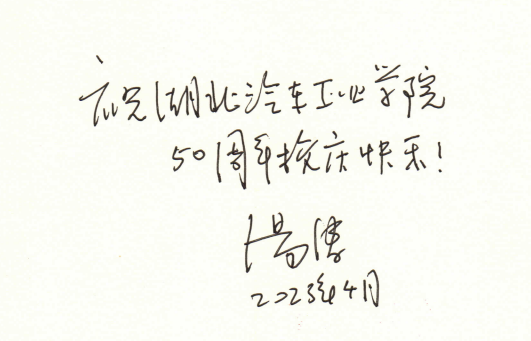 祝湖北汽车工业学院
50周年校庆快乐!
2023年4月